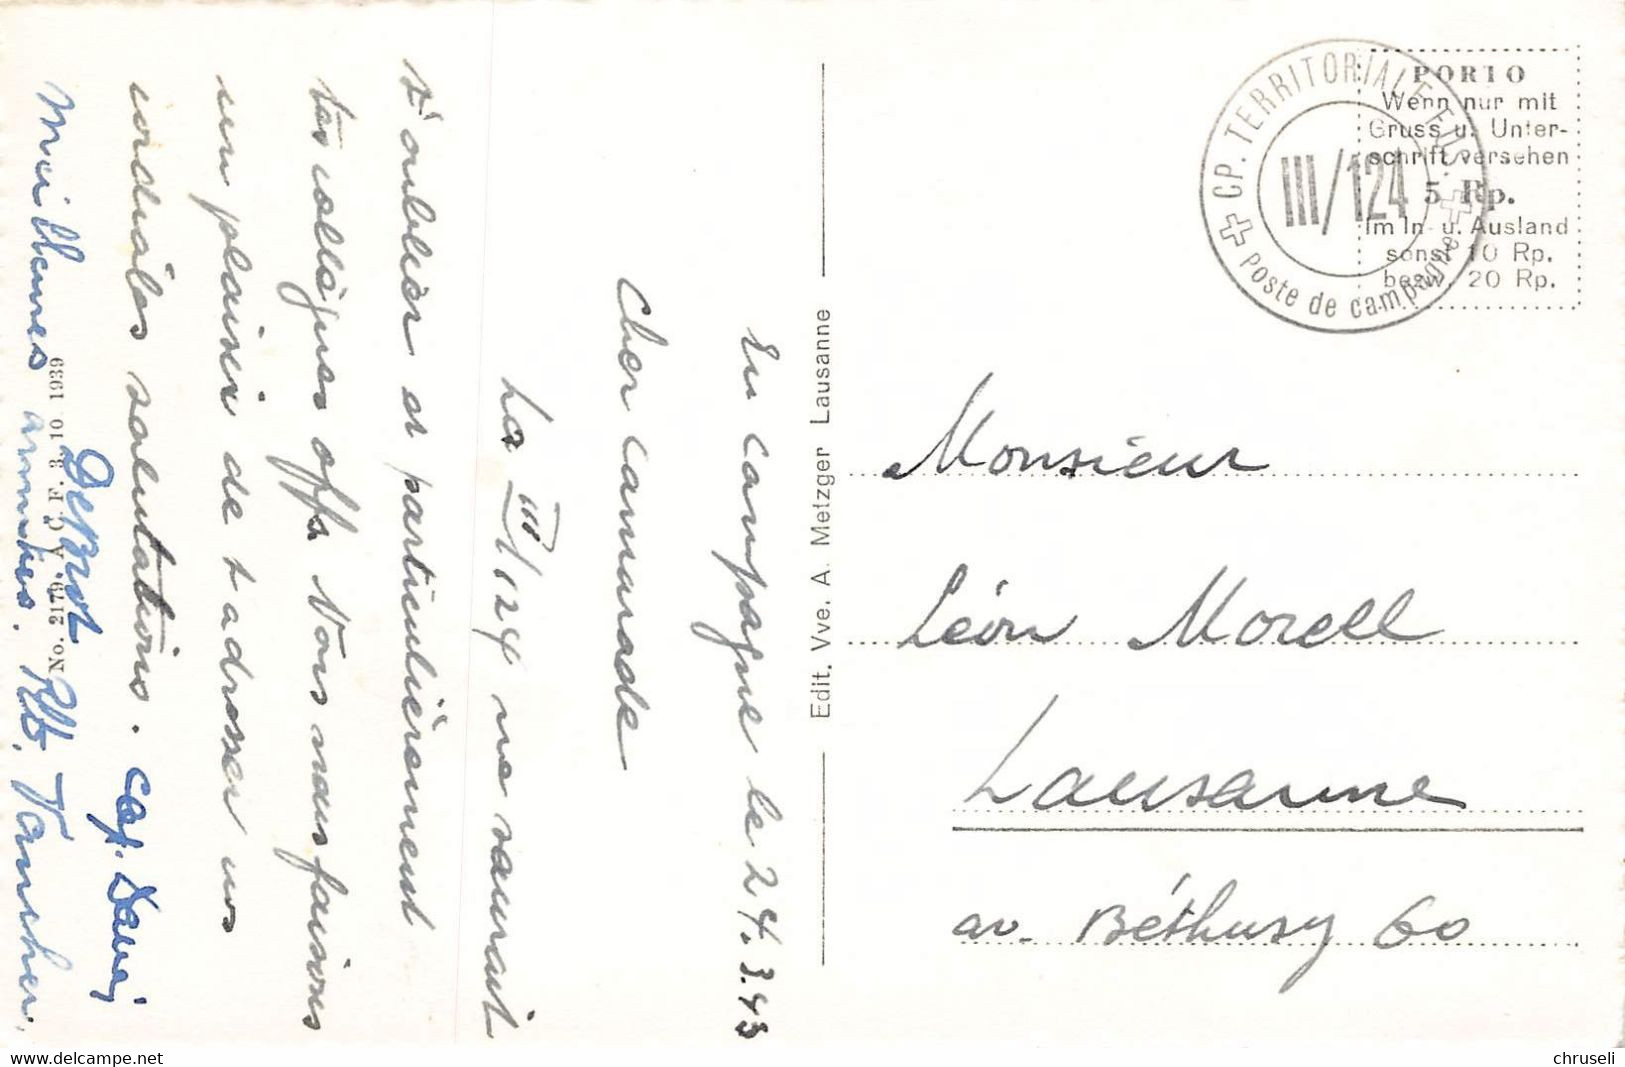 En campagne le 24.3.43
Cher camarade
La III/124 ne saurait
t'oublier et particulièrement
tes collègues offs. Nous nous faisons
un plaisir de t'adresser nos
cordiales salutations. Cap.
Meilleures amitiés. Plt. Tanner.
No. 2179. A C F. 3.10 1939
Edit. Vve. A. Metzger Lausanne
CP. TERRITORIALE FUS.
III/124
Poste de campagne
PORTO
Wenn nur mit
Gruss u. Unter-
schrift versehen
5 Rp.
Im In- u. Ausland
sonst 10 Rp.
bezw. 20 Rp.
Monsieur
Léon Morell
Lausanne
av. Béthusy 60
chruseli